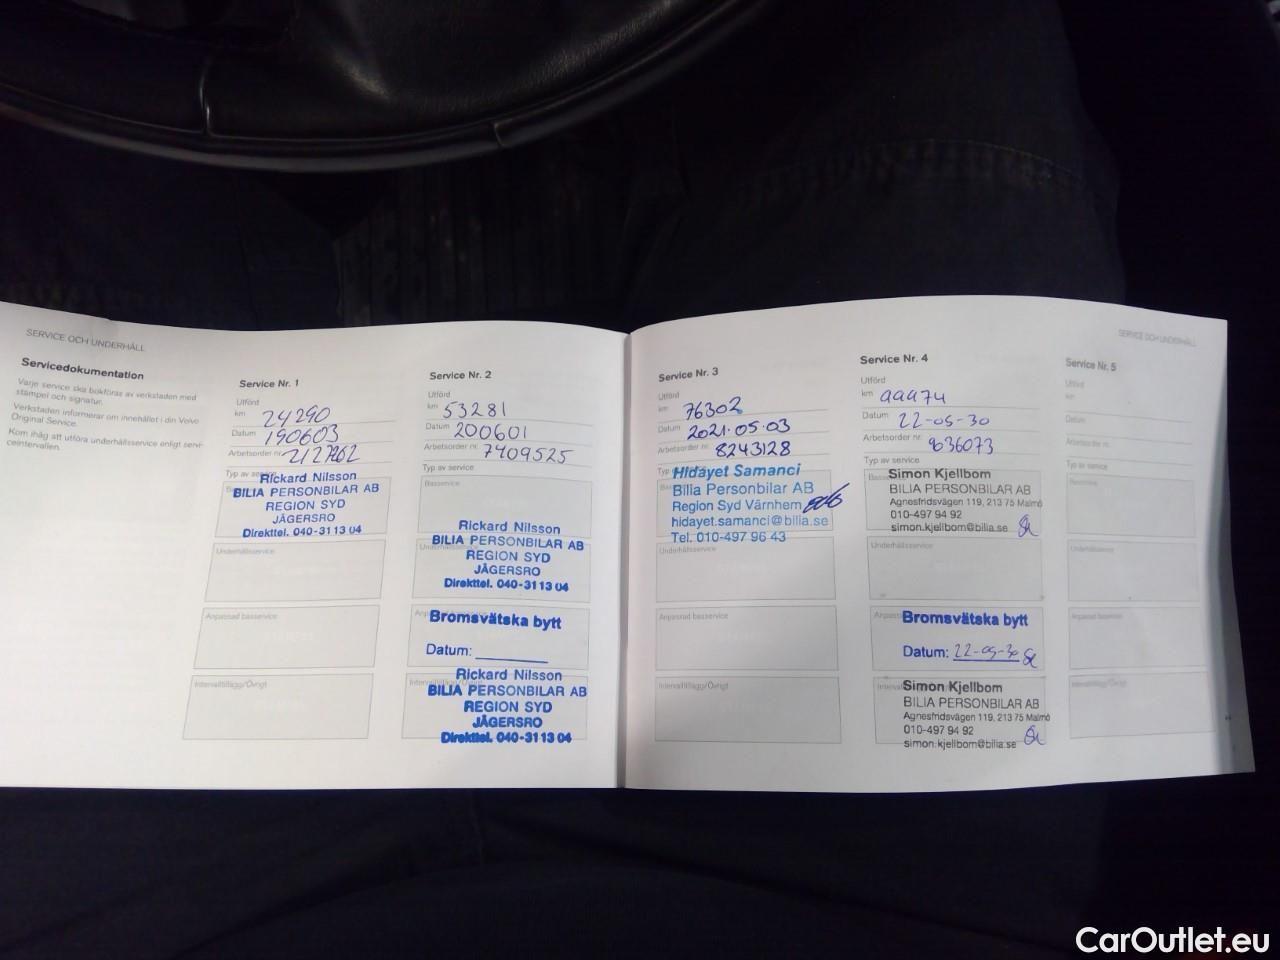 SERVICE OCH UNDERHÅLL
Servicedokumentation
Varje service ska bokföras av verkstaden med
stämpel och signatur.
Verkstaden informerar om innehållet i din Volvo
Original Service.
Kom ihåg att utföra underhållsservice enligt serv-
iceintervallen.
Service Nr. 1
Utförd
km 24290
Datum 190603
Arbetsorder nr
Typ av service
Rickard Nilsson
BILIA PERSONBILAR AB
REGION SYD
JÄGERSRO
Direkttel. 040-31 13 04
Underhållsservice
Anpassad basservice
Intervalltillägg/Övrigt
Service Nr. 2
Utförd
km 53281
Datum 200601
Arbetsorder nr 7409525
Typ av service
Basservice
Rickard Nilsson
BILIA PERSONBILAR AB
REGION SYD
JÄGERSRO
Direkttel. 040-31 13 04
Bromsvätska bytt
Datum:
Rickard Nilsson
BILIA PERSONBILAR AB
REGION SYD
JÄGERSRO
Direkttel. 040-31 13 04
Service Nr. 3
Utförd
km 76302
Datum 2021.05.03
Arbetsorder nr 8243128
Typ av service
Hidayet Samanci
Bilia Personbilar AB
Region Syd Värnhem
hidayet.samanci@bilia.se
Tel. 010-497 96 43
Underhållsservice
Anpassad basservice
Intervalltillägg/Övrigt
SERVICE OCH UNDERHÅLL
Service Nr. 4
Utförd
km 99974
Datum 22-05-30
Arbetsorder nr 9036073
Typ av service
Simon Kjellbom
BILIA PERSONBILAR AB
Agnesfridsvägen 119, 213 75 Malmö
010-497 94 92
simon.kjellbom@bilia.se
Underhållsservice
Bromsvätska bytt
Datum: 22-05-30
Simon Kjellbom
BILIA PERSONBILAR AB
Agnesfridsvägen 119, 213 75 Malmö
010-497 94 92
simon.kjellbom@bilia.se
Service Nr. 5
Utförd
km
Datum
Arbetsorder nr
Typ av service
Basservice
Underhållsservice
Anpassad basservice
Intervalltillägg/Övrigt
CarOutlet.eu